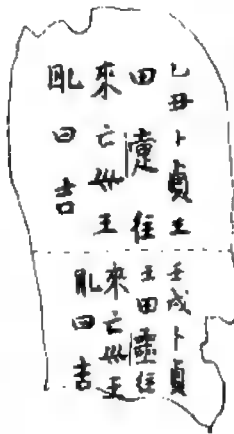 乙丑卜貞王
田疐往
來亡𡿧王
曰吉
壬戌卜貞
王田疐往
來亡𡿧王
曰吉